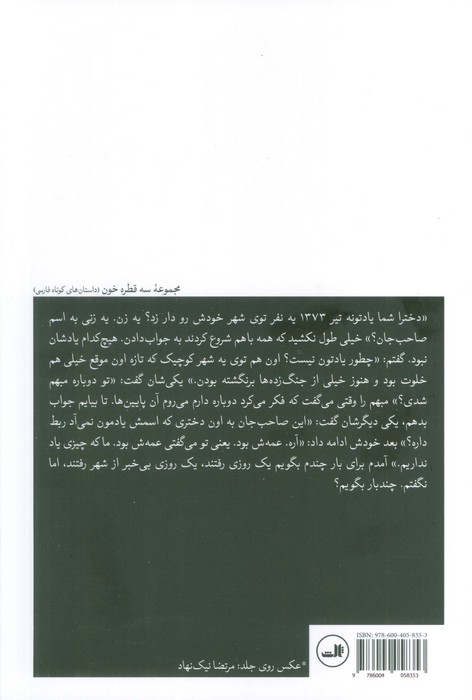 مجموعهٔ سه قطره خون (داستان‌های کوتاه فارسی)
«دخترا شما یادتونه تیر ۱۳۷۳ یه نفر توی شهر خودش رو دار زد؟ یه زن. یه زنی به اسم
صاحب‌جان؟» خیلی طول نکشید که همه باهم شروع کردند به جواب‌دادن. هیچ‌کدام یادشان
نبود. گفتم: «چطور یادتون نیست؟ اون هم توی یه شهر کوچیک که تازه اون موقع خیلی هم
خلوت بود و هنوز خیلی از جنگ‌زده‌ها برنگشته بودن.» یکی‌شان گفت: «تو دوباره مبهم
شدی؟» مبهم را وقتی می‌گفت که فکر می‌کرد دوباره دارم می‌روم آن پایین‌ها. تا بیایم جواب
بدهم، یکی دیگرشان گفت: «این صاحب‌جان به اون دختری که اسمش یادمون نمی‌آد ربط
داره؟» بعد خودش ادامه داد: «آره. عمه‌ش بود. یعنی تو می‌گفتی عمه‌ش بود. ما که چیزی یاد
نداریم.» آمدم برای بار چندم بگویم یک روزی رفتند، یک روزی بی‌خبر از شهر رفتند، اما
نگفتم. چندبار بگویم؟
ISBN: 978-600-405-835-3
9 786004 058353
ثالث
*عکس روی جلد: مرتضا نیک‌نهاد